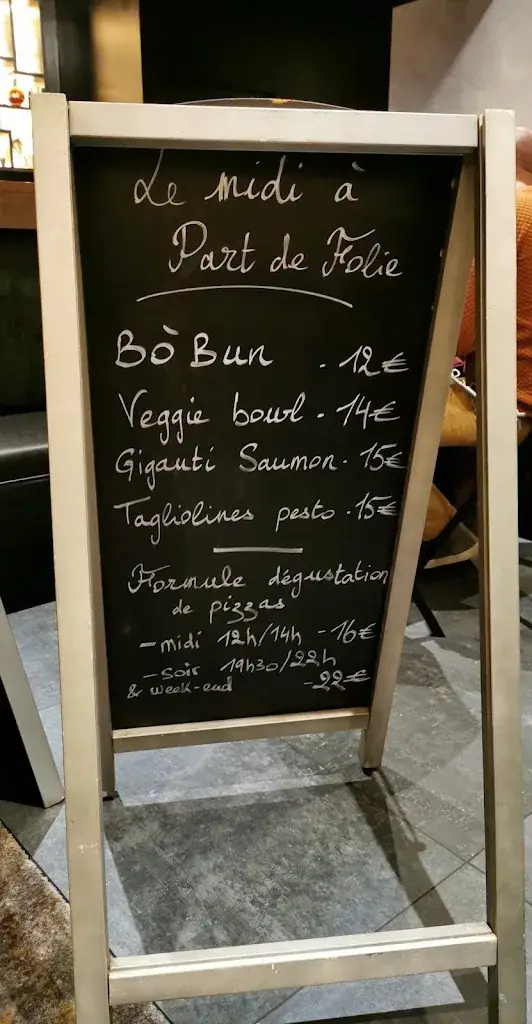 Le midi à
Part de Folie
Bò Bun - 12€
Veggie bowl - 14€
Giganti Saumon - 15€
Tagliolines pesto - 15€
Formule dégustation
de pizzas
- midi 12h/14h - 16€
- soir 19h30/22h
& week-end - 22€